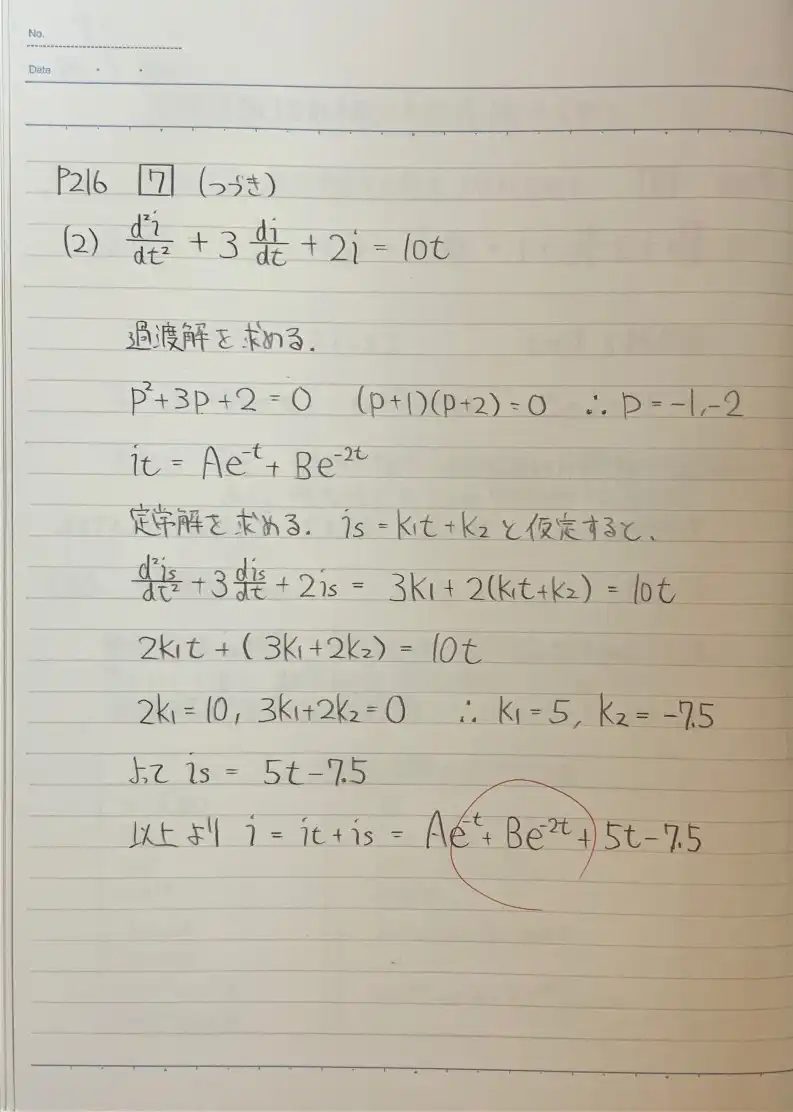 No.
Date
P216 7 (つづき)
(2) d²i/dt² + 3 di/dt + 2i = 10t
過渡解を求める.
p²+3p+2=0 (p+1)(p+2)=0 ∴ p=-1,-2
it = Ae^-t + Be^-2t
定常解を求める. is = k₁t+k₂と仮定すると、
d²is/dt² + 3 dis/dt + 2is = 3k₁ + 2(k₁t+k₂) = 10t
2k₁t + (3k₁+2k₂) = 10t
2k₁=10, 3k₁+2k₂=0 ∴ k₁=5, k₂=-7.5
よって is = 5t-7.5
以上より i = it+is = Ae^-t + Be^-2t + 5t-7.5